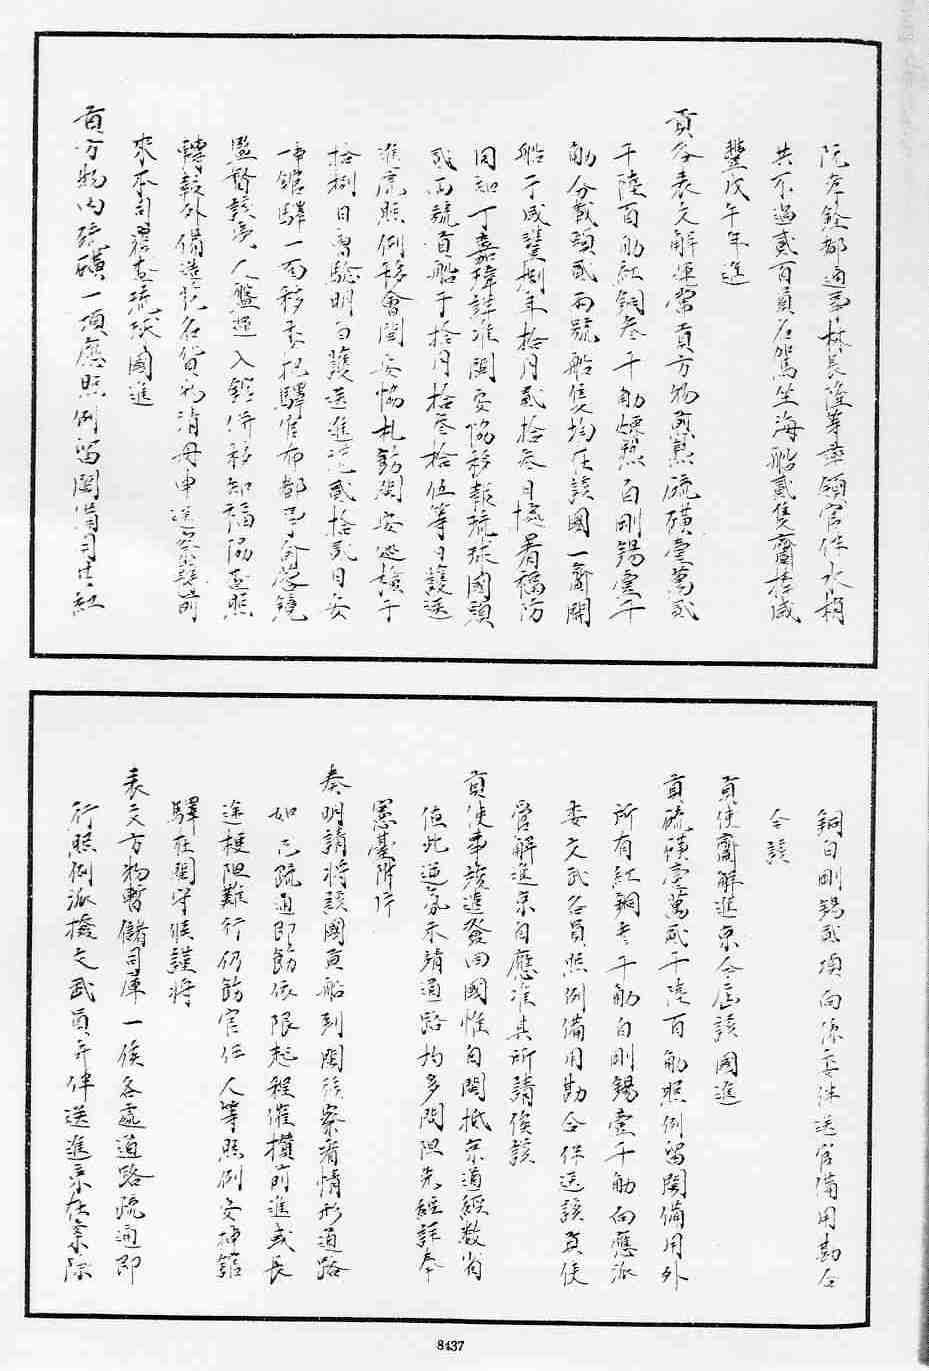 阮孝銓都通事林長隆等率領官伴水梢
共不過貳百員名駕坐海船貳隻齎捧咸
豐戊午年進
貢各表文解運常貢方物煎熟硫磺壹萬貳
千陸百觔紅銅叁千觔煉熟白剛錫壹千
觔分載頭貳兩號船隻均在該國一齊開
船于咸豐捌年拾月貳拾叁日據署福防
同知丁嘉瑋詳准閩安協移報琉球國頭
貳兩號貢船于拾月拾叁拾伍等日護送
進虎照例移會閩安協札飭閩安巡檢于
拾捌日會驗明白護送進港貳拾貳日安
插館驛一面移委把驛官布都司會營鏡
監督該夷人盤運入館併移知福協委照
轉報外備造花名貨物清冊申送察詳前
來本司覆查琉球國進
貢方物內硫磺一項應照例留閩備用其紅
銅白剛錫貳項向係委津送官備用勘合
令該
貢使齎解進京今屆該國進
貢硫磺壹萬貳千陸百觔照例留閩備用外
所有紅銅叁千觔白剛錫壹千觔向應派
委文武各員照例備用勘合伴送該貢使
管解進京自應准其所請俟該
貢使事竣進發回國惟自閩抵京道經數省
值此逆氛未靖道路均多間阻先經詳奉
憲臺附片
奏明請將該國貢船到閩後察看情形道路
如已疏通即飭依限起程催攢前進或長
途梗阻難行仍飭官伴人等照例安插館
驛在閩守候謹將
表文方物暫儲司庫一俟各處道路疏通即
行照例派撥文武員弁伴送進京在案除
8437